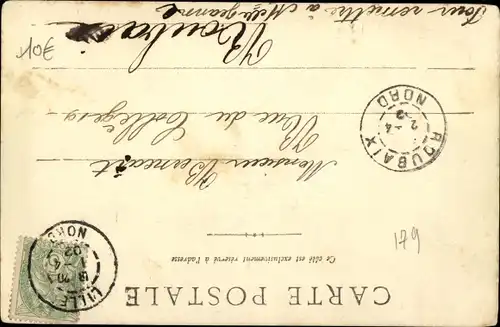 CARTE POSTALE
Ce côté est exclusivement réservé à l'adresse
Monsieur Bernaert
Rue du Collège
Roubaix
Pour remettre à Melle Jeanne
ROUBAIX
NORD
LILLE
NORD
179